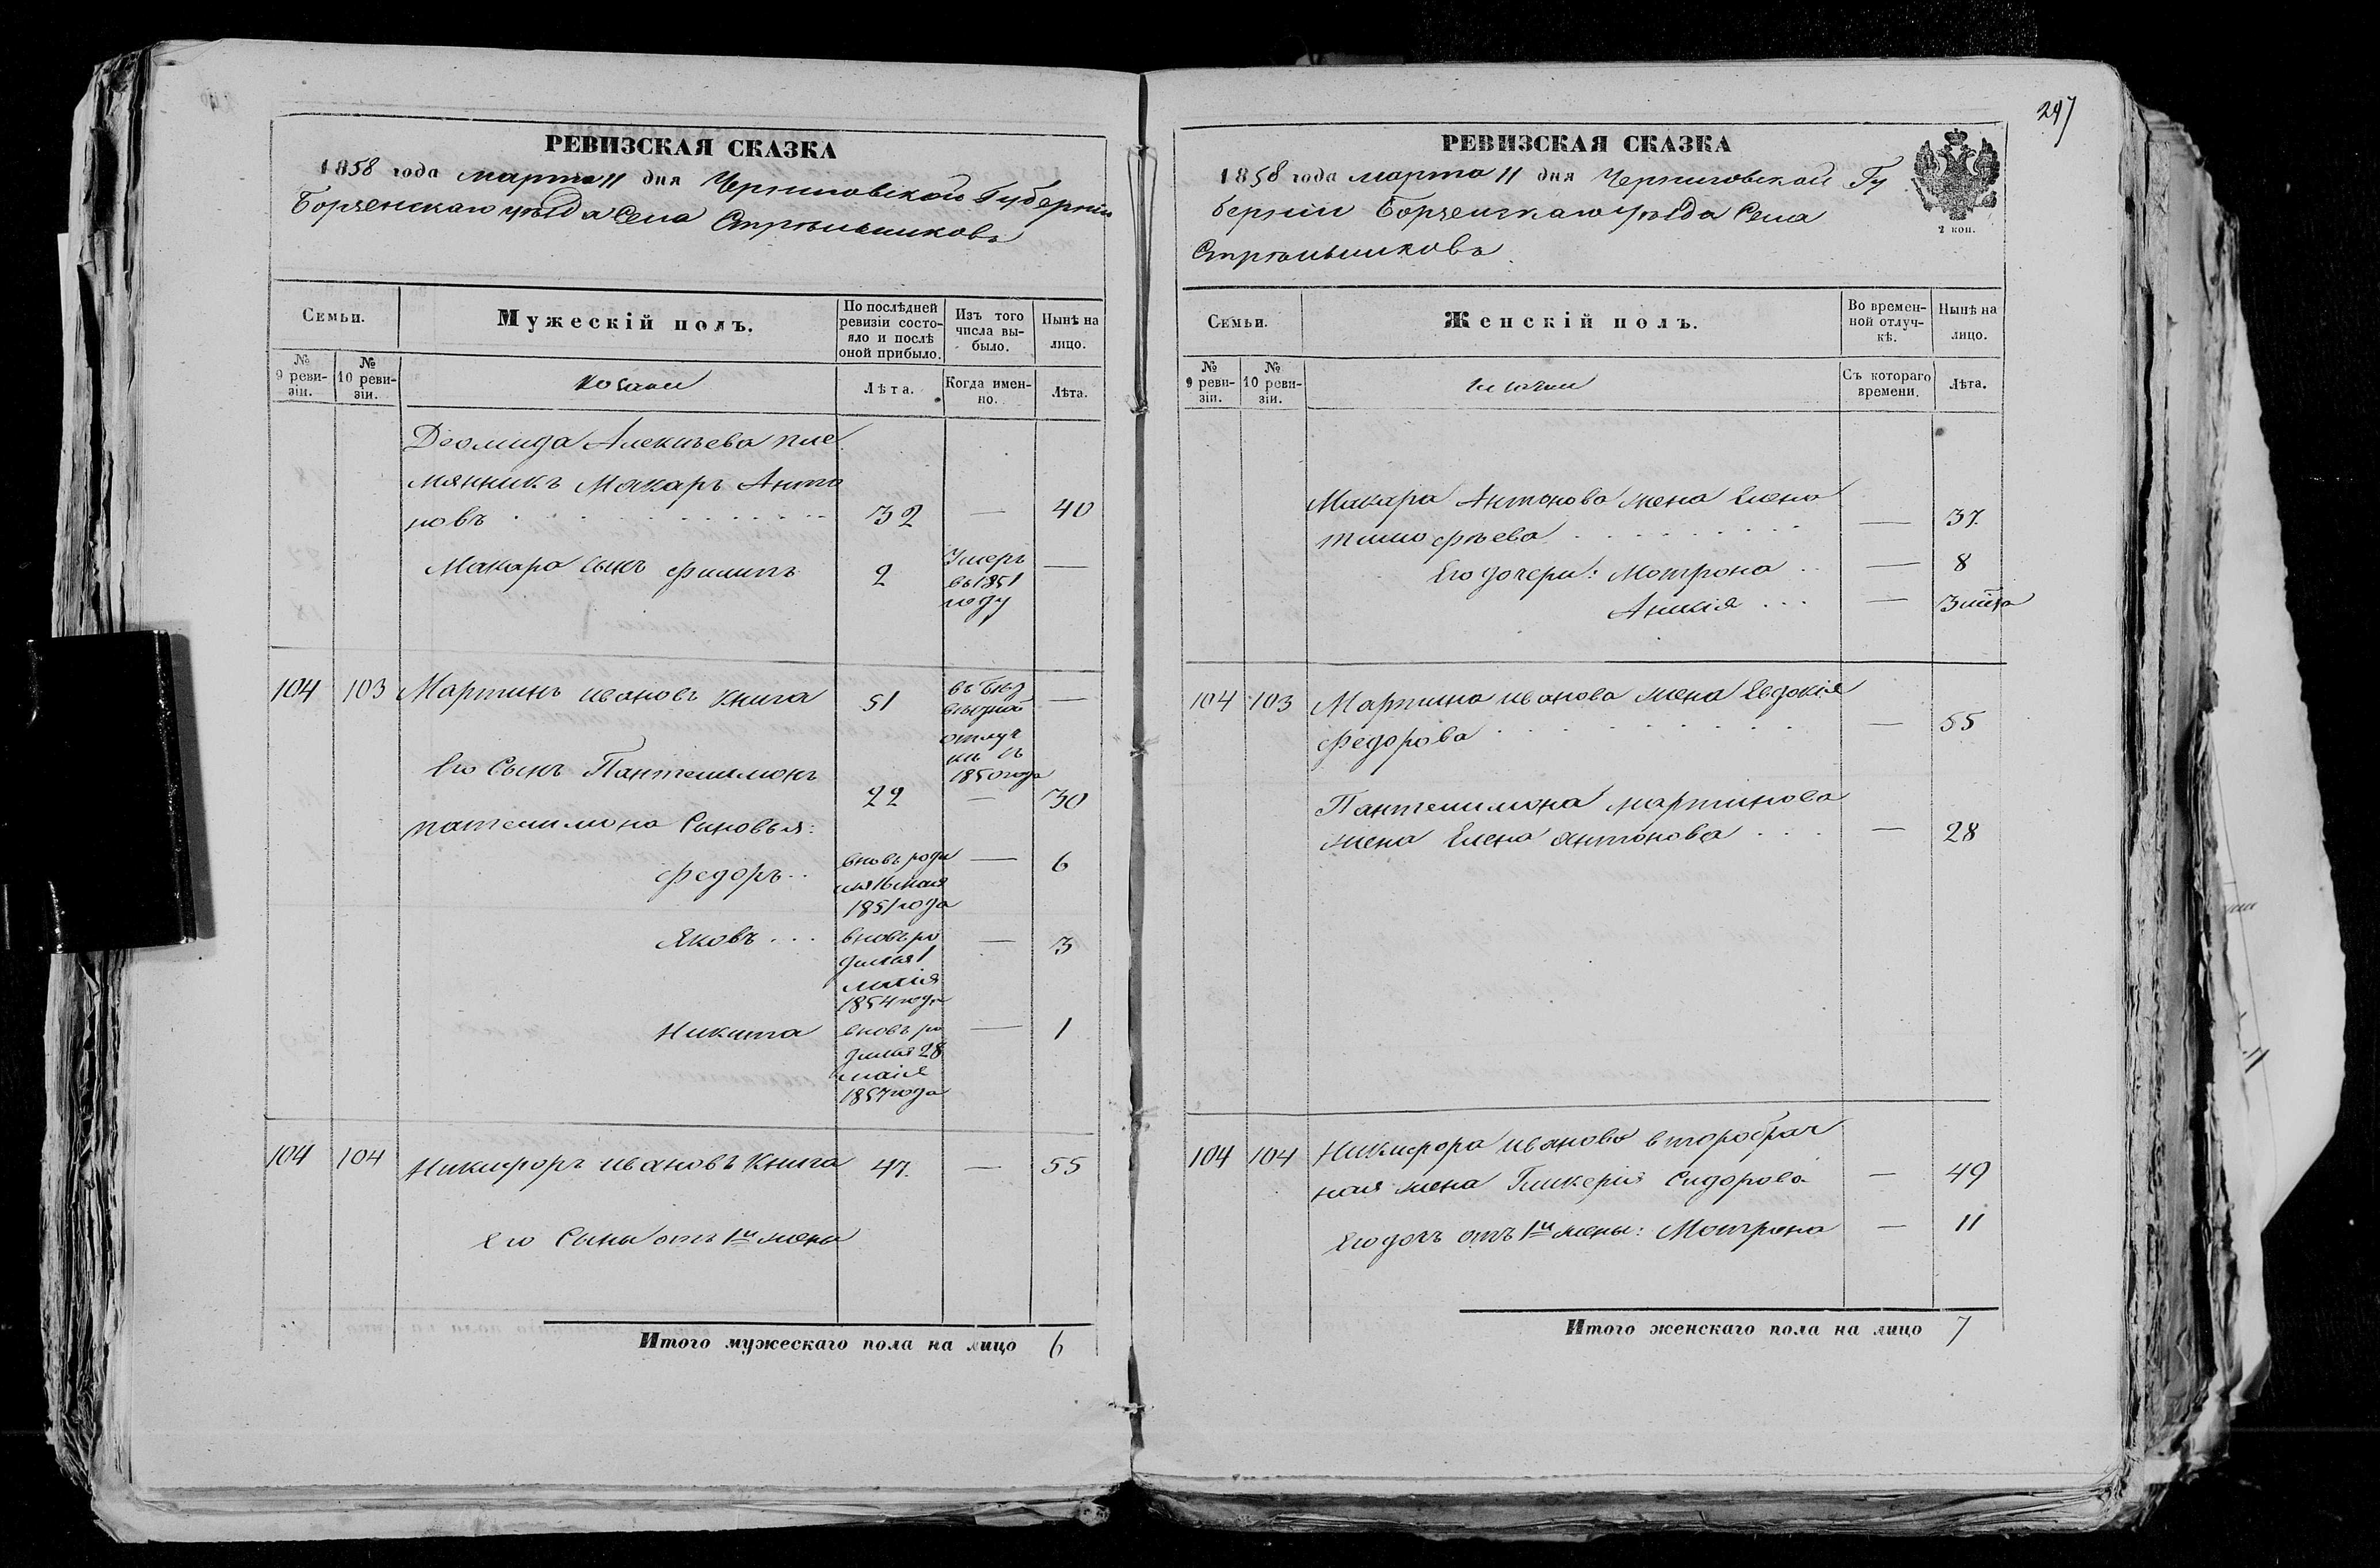 РЕВИЗСКАЯ СКАЗКА
1858 года марта 11 дня Черниговской Губерніи
Борзенскаго уѣзда Села Стрѣльниковъ
Семьи.
Мужескій полъ.
По послѣдней ревизіи состояло и послѣ оной прибыло.
Изъ того числа выбыло.
Нынѣ на лицо.
№ 9 ревизіи.
№ 10 ревизіи.
козаки
Лѣта.
Когда именно.
Лѣта.
Деомида Алексѣева пле
мянникъ Макаръ Анто
новъ 32 — 40
Макара сынъ Филипъ 2 Умеръ —
въ 1851
году
104 103 Мартинъ ивановъ Книга 51 въ без —
вѣстной
отлуч
кѣ съ
1850 года
Его Сынъ Пантелимонъ
22 — 30
пантелимона Сыновья:
Федоръ вновь роди — 6
лся 16 мая
1851 года
Яковъ вновь ро — 3
дился 1
маія
1854 года
Никита вновь ро — 1
дился 28
маія
1857 года
104 104 Никифоръ ивановъ Книга 47. — 55
Его Сыны отъ 1й жены
Итого мужескаго пола на лицо 6
247
РЕВИЗСКАЯ СКАЗКА
1858 года марта 11 дня Черниговской Гу
берніи Борзенскаго уѣзда Села
Стрѣльниковъ.
2 коп.
Семьи.
Женскій полъ.
Во временной отлучкѣ.
Нынѣ на лицо.
№ 9 ревизіи.
№ 10 ревизіи.
Съ котораго времени.
Лѣта.
Макара Антонова жена Елена
тимофѣева — 37.
Его дочери: Мотрона — 8
— 3
104 103 Мартина иванова жена Евдокія
федорова — 55
Пантелимона мартинова
жена Елена антонова — 28
104 104 Никифора иванова второбрач
ная жена Гликерія Сидорова — 49
Его дочь отъ 1й жены: Мотрона — 11
Итого женскаго пола на лицо 7